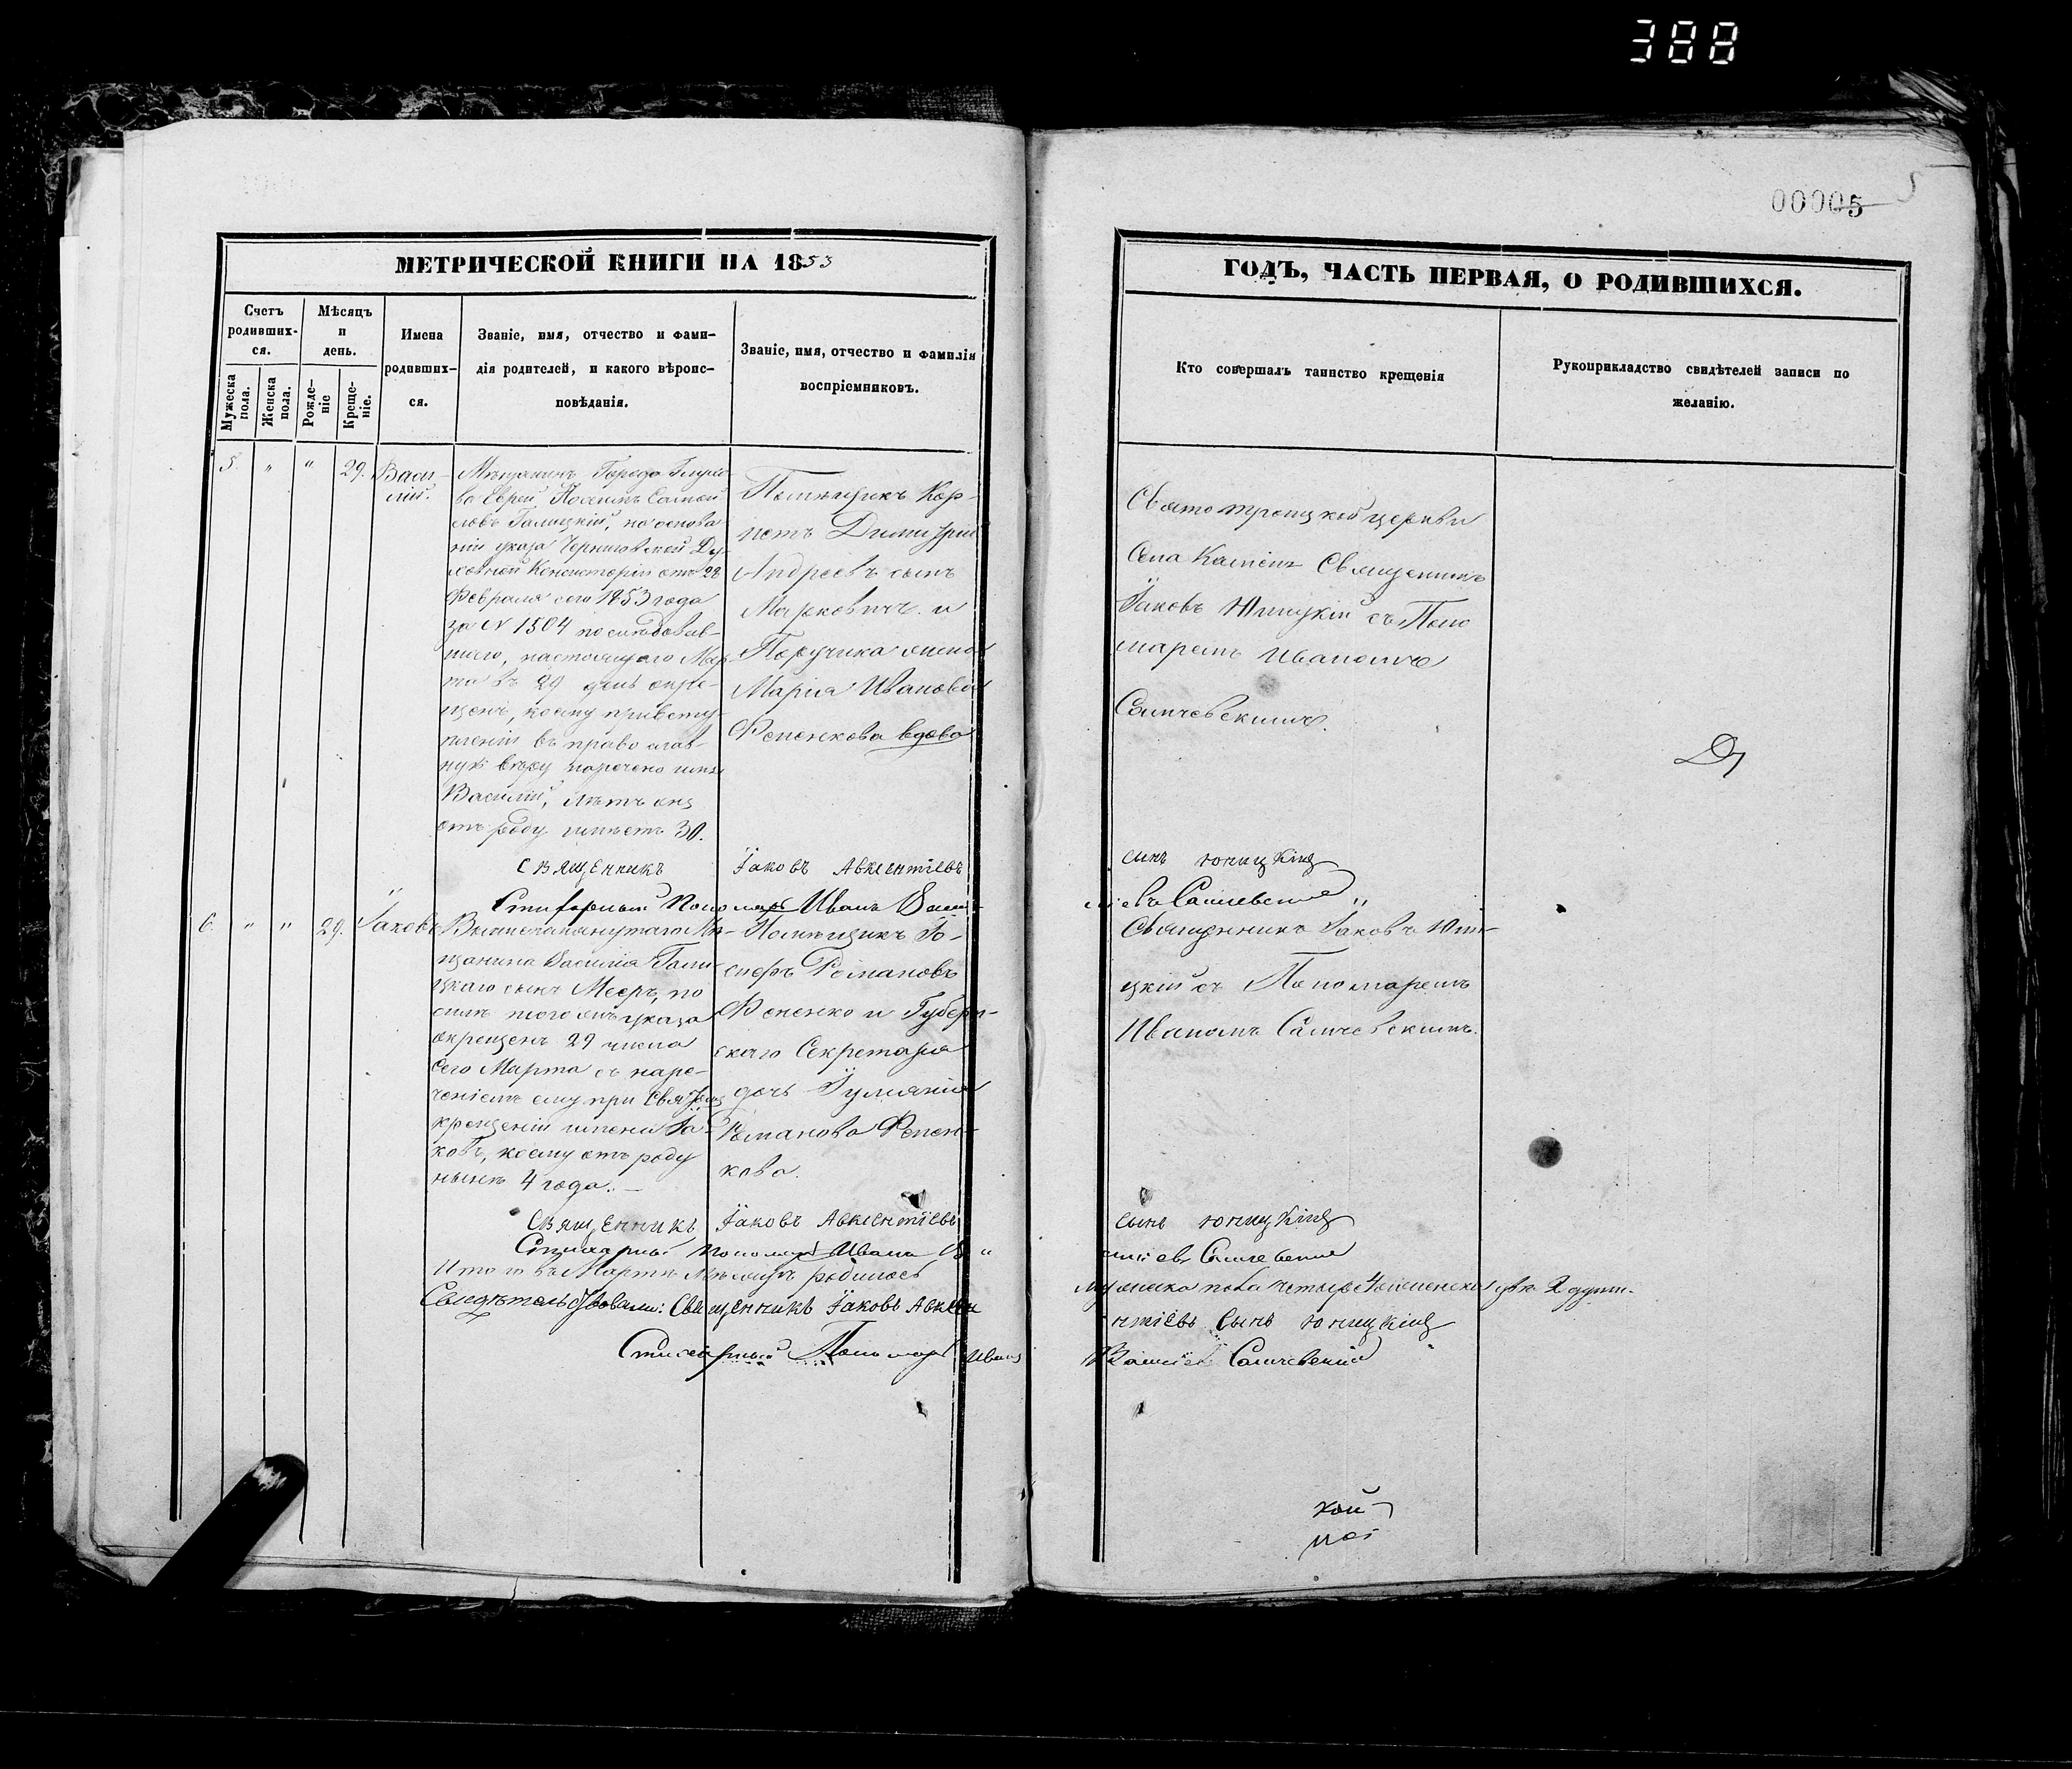 388
00005
5
МЕТРИЧЕСКОЙ КНИГИ НА 1853
ГОДЪ, ЧАСТЬ ПЕРВАЯ, О РОДИВШИХСЯ.
Счетъ родивших-ся.
Мужеска пола.
Женска пола.
Мѣсяцъ и день.
Рожде-ніе
Креще-ніе.
Имена
родивших-
ся.
Званіе, имя, отчество и фами-
лія родителей, и какого вѣроис-
повѣданія.
Званіе, имя, отчество и фамилія
воспріемниковъ.
Кто совершалъ таинство крещенія
Рукоприкладство свидѣтелей записи по
желанію.
5. " " 29.
Васи-
лій.
Мѣщанинъ Города Глухо
ва Еврей
Галицкій, на основа
ніи указа Черниговской Ду-
ховной Консисторіи отъ 28
Февраля сего 1853 года
за N 1504 послѣдовав-
шаго, настоящаго Мар-
та въ 29 день окре-
щенъ, коему при всту-
пленіи въ православ-
ную вѣру наречено имя
Василій, лѣтъ ему
отъ роду имѣетъ 30.
Помѣщикъ Кор-
нетъ Димитрій
Андреевъ сынъ
Марковичъ и
Поручика жена
Марія Иванова
Фененкова вдова
Святотроицкой церкви
Села Камень Священникъ
Іаковъ Юницкій съ Поно
маремъ Иваномъ
Самчевскимъ.
священникъ Іаковъ Авксентіевъ сынъ Юницкій
Стихарный Пономарь Иванъ Васи-
ліевъ Самчевскій
6. " " 29.
Іаковъ
Вышепомянутаго Мѣ-
щанина Василія Гали-
цкаго сынъ Мееръ, по
силѣ того жъ указа
окрещенъ 29 числа
сего Марта съ наре-
ченіемъ ему при Свят.
крещеніи имени Іа-
ковъ, коему отъ роду
нынѣ 4 года.
Помѣщикъ Іо-
сифъ Романовъ
Фененко и Губерн-
скаго Секретаря
дочь Іуліанія
Романова Фенен-
кова.
Священникъ Іаковъ Юни-
цкій съ Пономаремъ
Иваномъ Самчевскимъ.
священникъ Іаковъ Авксентіевъ сынъ Юницкій
Стихарный Пономарь Иванъ Ва-
силіевъ Самчевскій
Итого въ Мартѣ Мѣсяцѣ родилось мужеска пола четыре женска двѣ души.
Свидѣтельствовали: Священникъ Іаковъ Авксе-
нтіевъ сынъ Юницкій
Стихарный Пономарь Иванъ Василіев Самчевскій
кой